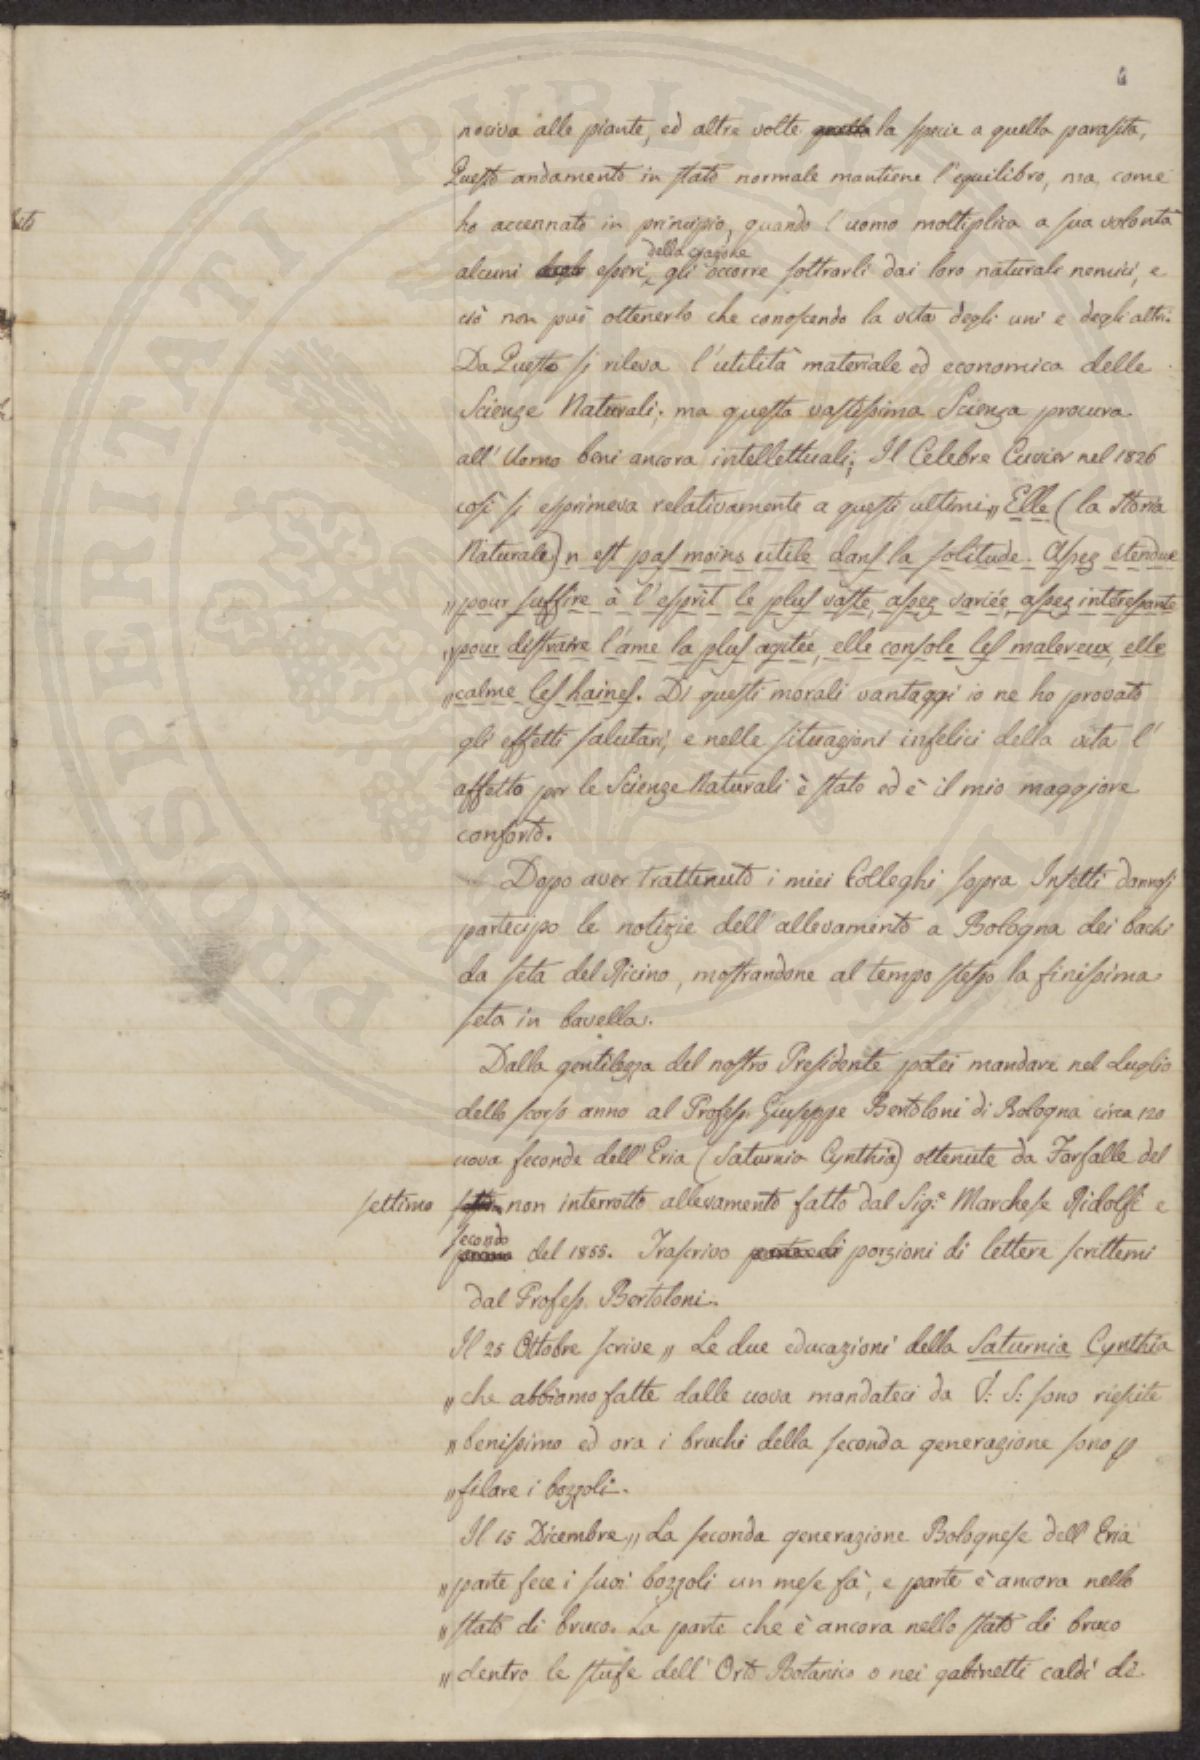 nociva alle piante, ed altre volte quella la specie a quella parasita,
Questo andamento in stato normale mantiene l'equilibro, ma, come
ho accennato in principio, quando l'uomo moltiplica a sua volontà
della creazione
alcuni degli esseri, gli occorre sottrarli dai loro naturali nemici, e
ciò non può ottenerlo che conoscendo la vita degli uni e degli altri.
Da Questo si rileva l'utilità materiale ed economica delle
Scienze Naturali; ma questa vastissima Scienza procura
all'Uomo beni ancora intellettuali; Il Celebre Cuvier nel 1826
così si esprimeva relativamente a questi ultimi „ Elle (la Storia
Naturale) n est pas moins utile dans la solitude. Assez étendue
„ pour suffire à l'esprit le plus vaste, assez variée, assez interessante
„ pour distraire l'âme la plus agitée, elle console les malereux, elle
„ calme les haines. Di questi morali vantaggi io ne ho provato
gli effetti salutari, e nelle situazioni infelici della vita l'
affetto per le Scienze Naturali è stato ed è il mio maggiore
conforto.
Dopo aver trattenuto i miei Colleghi sopra Insetti dannosi
partecipo le notizie dell'allevamento a Bologna dei bachi
da seta del Ricino, mostrandone al tempo stesso la finissima
seta in bavella.
Dalla gentilezza del nostro Presidente potei mandare nel Luglio
dello scorso anno al Profess. Giuseppe Bertoloni di Bologna circa 120
uova feconde dell'Eria (Saturnia Cynthia) ottenute da Farfalle del
settimo non interrotto allevamento fatto dal Sig.e Marchese Ridolfi e
secondo
primo del 1855. Trascrivo parte di porzioni di lettere scrittemi
dal Profess. Bertoloni.
Il 25 Ottobre scrive „ Le due educazioni della Saturnia Cynthia
„ che abbiamo fatte dalle uova mandateci da V: S: sono riescite
„ benissimo ed ora i bruchi della seconda generazione sono p
„ filare i bozzoli.
Il 15 Dicembre „ La seconda generazione Bolognese dell'Eria
„ parte fece i suoi bozzoli un mese fà, e parte è ancora nello
„ stato di bruco. La parte che è ancora nello stato di bruco
„ dentro le stufe dell'Orto Botanico o nei gabinetti caldi di